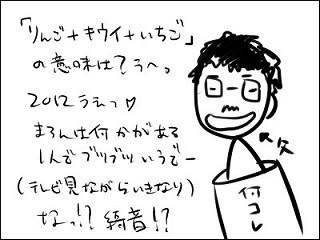 「りんご+キウイ+いちご」
の意味はてうへ。
2012うえっ♡
まろんは付かがある
1人でブツブツいうでー
(テレビ見ながらいきなり)
なっ!?綺音!?
←父
付コレ